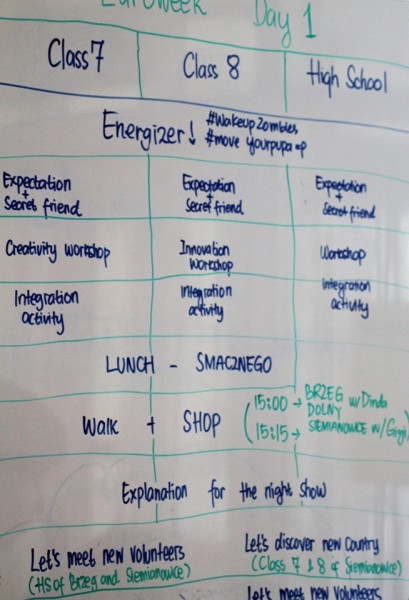 EuroWeek Day 1
Class 7 Class 8 High School
Energizer! #WakeupZombies
#move yourpupa =p
Expectation Expectation Expectation
+ + +
Secret friend Secret friend Secret friend
Creativity workshop Innovation Workshop
Workshop
Integration Integration Integration
activity activity activity
LUNCH - SMACZNEGO
Walk + SHOP
(15:00 → BRZEG w/Dinda
DOLNY
15:15 → SIEMIANOWICE w/
Explanation for the night show
Let's meet new Volunteers Let's discover new Country
(HS of Brzeg and Siemianowice) (Class 7 & 8 of Siemianowice)
Let's meet new Volunteers